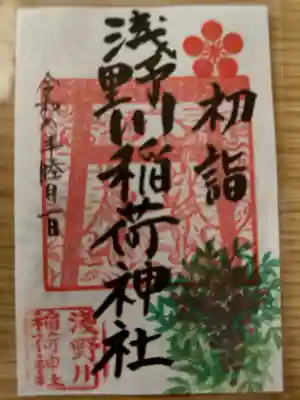 初詣
浅野川稲荷神社
令和六年睦月一日
浅野川
稲荷神社